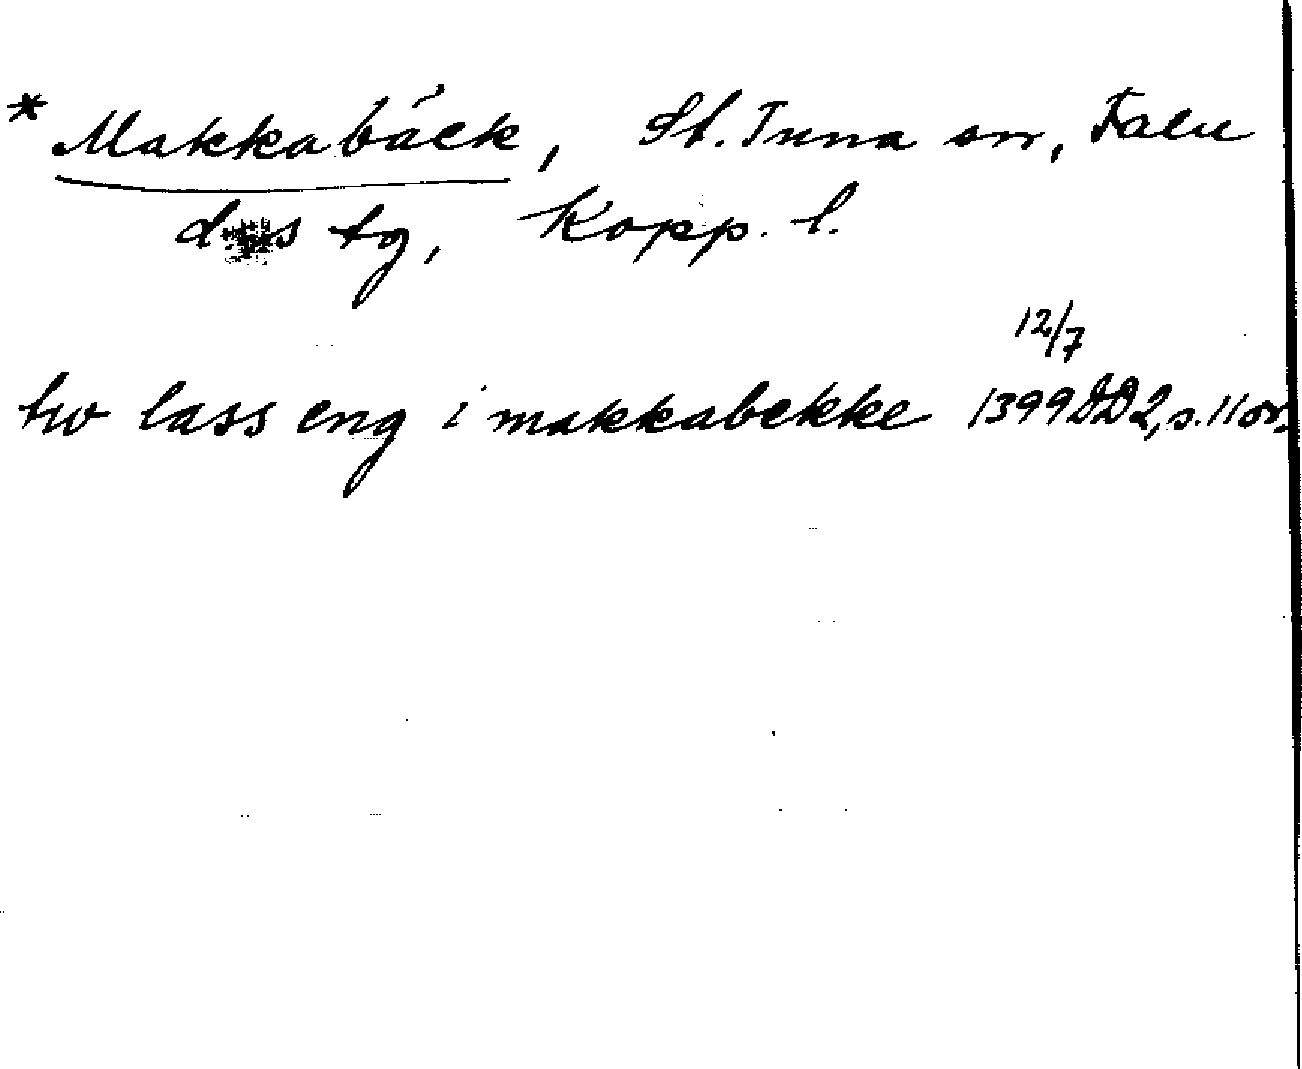 * Makkabäck, St. Tuna sn, Falu
d s tg, Kopp. l.
12/7
tw lass eng i makkabekke 1399 DD 2, s. 11 or.